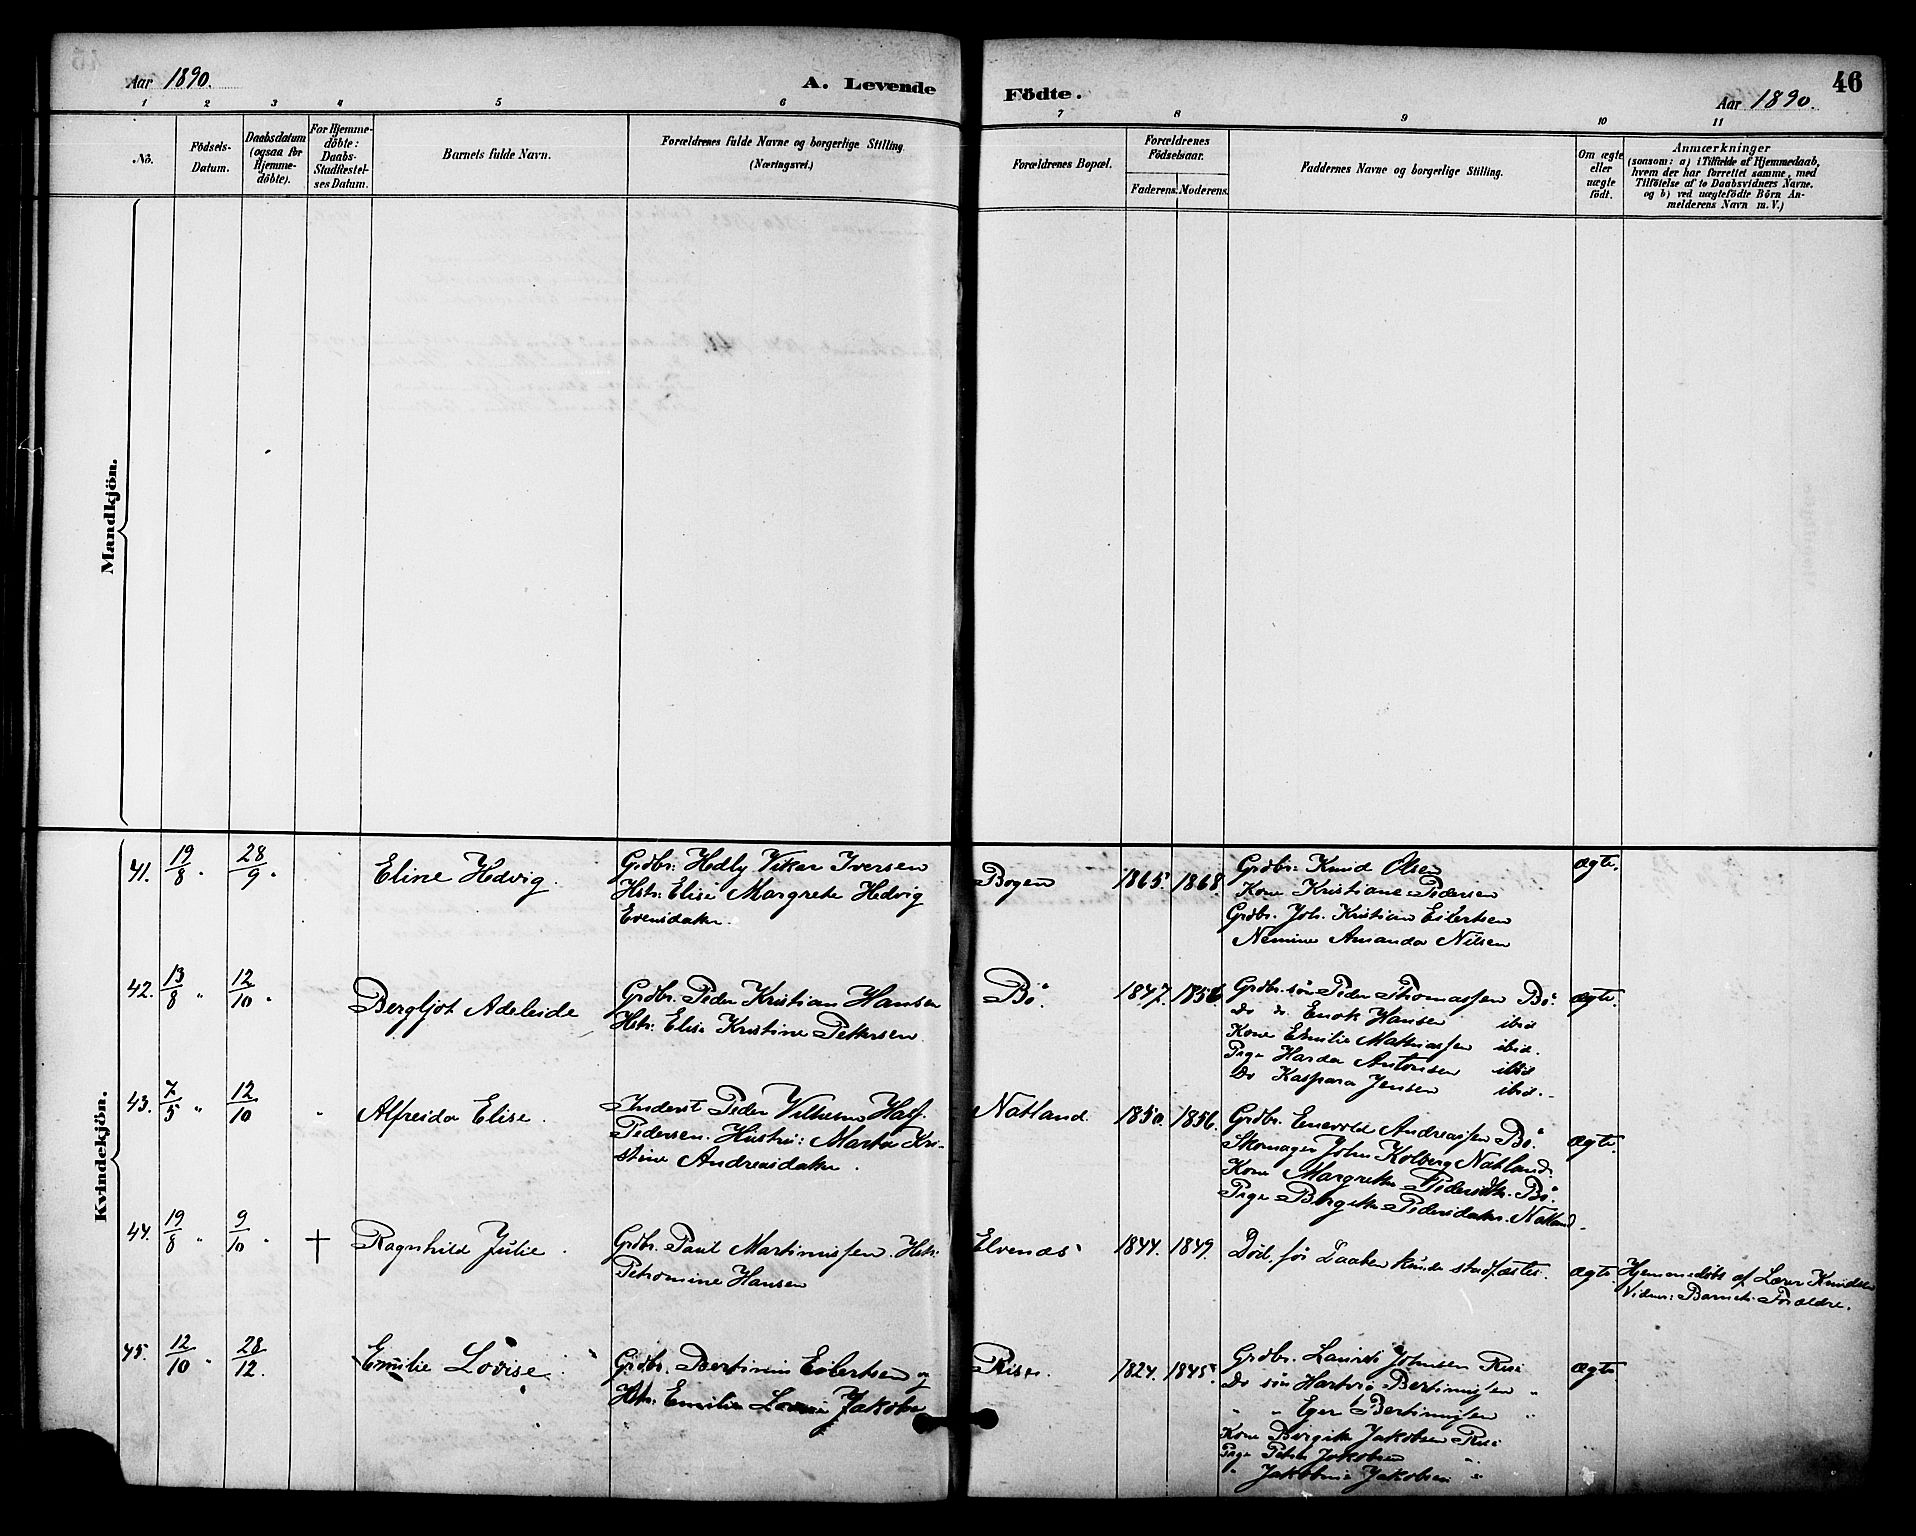 Aar 1890.
A. Levende
Födte.
Aar 1890.
46
1 2 3 4 5 6 7 8 9 10 11
No.
Födsels-
Datum.
Daabsdatum
(ogsaa for
Hjemme-
döbte).
For Hjemme-
döbte:
Daabs-
Stadfæstel-
ses Datum.
Barnets fulde Navn.
Forældrenes fulde Navne og borgerlige Stilling.
(Næringsvei.)
Forældrenes Bopæl.
Forældrenes
Födselsaar.
Faderens. Moderens.
Faddernes Navne og borgerlige Stilling.
Om ægte
eller
uægte
födt.
Anmærkninger
(saasom: a) i Tilfælde af Hjemmedaab,
hvem der har forrettet samme, med
Tilföielse af to Daabsvidners Navne.
og b) ved uægtefödte Börn An-
melderens Navn m. V.)
Mandkjön.
Kvindekjön.
41. 19/8 " 28/9 "
Eline Hedvig.
Grdbr. Hedly Vikar Iversen
Hstr: Elise Margrete Hedvig
Evensdatter.
Bogen
1865. 1868.
Grdbr. Knud Olsen
Kone Kristiane Pedersen
Grdbr. Joh. Kristian Eilertsen
Amanda Nilsen
ægte.
42. 13/8 " 12/10 "
Bergljot Adeleide
Grdbr. Peder Kristian Hansen
Hstr: Elise Kristine Pettersen.
Bö.
1847. 1856.
Grdbr. sön Peder Thomassen Bö.
Do Do Enok Hansen ibid
Kone Emilie Mathiassen ibid.
Pige Harda Antonsen ibid
Do Kaspara Jensen ibid.
ægte.
43. 7/5 " 12/10 "
Alfreida Elise.
Inderst Peder Vilhelm Half.
Pedersen. Hustru: Marta Kri-
stine Andreasdatter.
Natland.
1850. 1856.
Grdbr. Enevold Andreassen Bö.
Skomager John Kolberg Natland.
Kone Margrete Pedersdtr. Bö.
Pige Birgitte Pedersdatter. Natland.
ægte.
44. 19/8 " 9/10 " +
Ragnhild Julie.
Grdbr. Paul Martinussen. Hstr:
Petromine Hansen
Elvenæs
1844. 1849.
Död før Daaben kunde stadfæstes.
ægte.
Hjemmedöbt af Lærer Knudsen
Vidner: Barnets Forældre.
45. 12/10 " 28/12.
Emilie Lovise.
Grdbr. Bertinius Eilertsen og
Hstr: Emilie Lovise Jakobsen
Rise.
1824. 1845.
Grdbr. Laurits Johnsen Rise
Do sön Hartvig Bertinussen "
" " Eger Bertinussen "
Kone Birgitte Jakobsen Rise
Pige Petra Jakobsen "
" Jakobine Jakobsen "
ægte